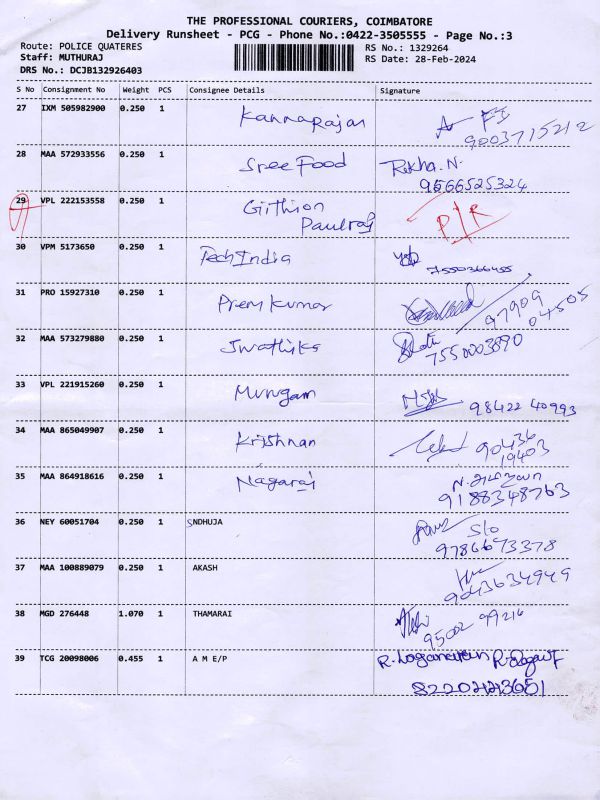 THE PROFESSIONAL COURIERS, COIMBATORE
Delivery Runsheet - PCG - Phone No.:0422-3505555 - Page No.:3
Route: POLICE QUATERES RS No.: 1329264
Staff: MUTHURAJ RS Date: 28-Feb-2024
DRS No.: DCJB132926403
S No Consignment No Weight PCS Consignee Details Signature
27 IXM 505982900 0.250 1 Kannarajan
9003715212
28 MAA 572933556 0.250 1 Sree Food Rekha. N.
9566525324
29 VPL 222153558 0.250 1 Girthion P/R
Paulraj
30 VPM 5173650 0.250 1 Tech India
7550366455
31 PRO 15927310 0.250 1 Prem kumar 97909
04505
32 MAA 573279880 0.250 1 Swathika
7550003890
33 VPL 221915260 0.250 1 Murugam
98422 40993
34 MAA 865049907 0.250 1 Krishnan 90436
19403
35 MAA 864918616 0.250 1 Nagaraj
9188348763
36 NEY 60051704 0.250 1 SNDHUJA S/o
9786673378
37 MAA 100889079 0.250 1 AKASH
9043634949
38 MGD 276448 1.070 1 THAMARAI
95002 99216
39 TCG 20098006 0.455 1 A M E/P R. Loganathan
8220243651